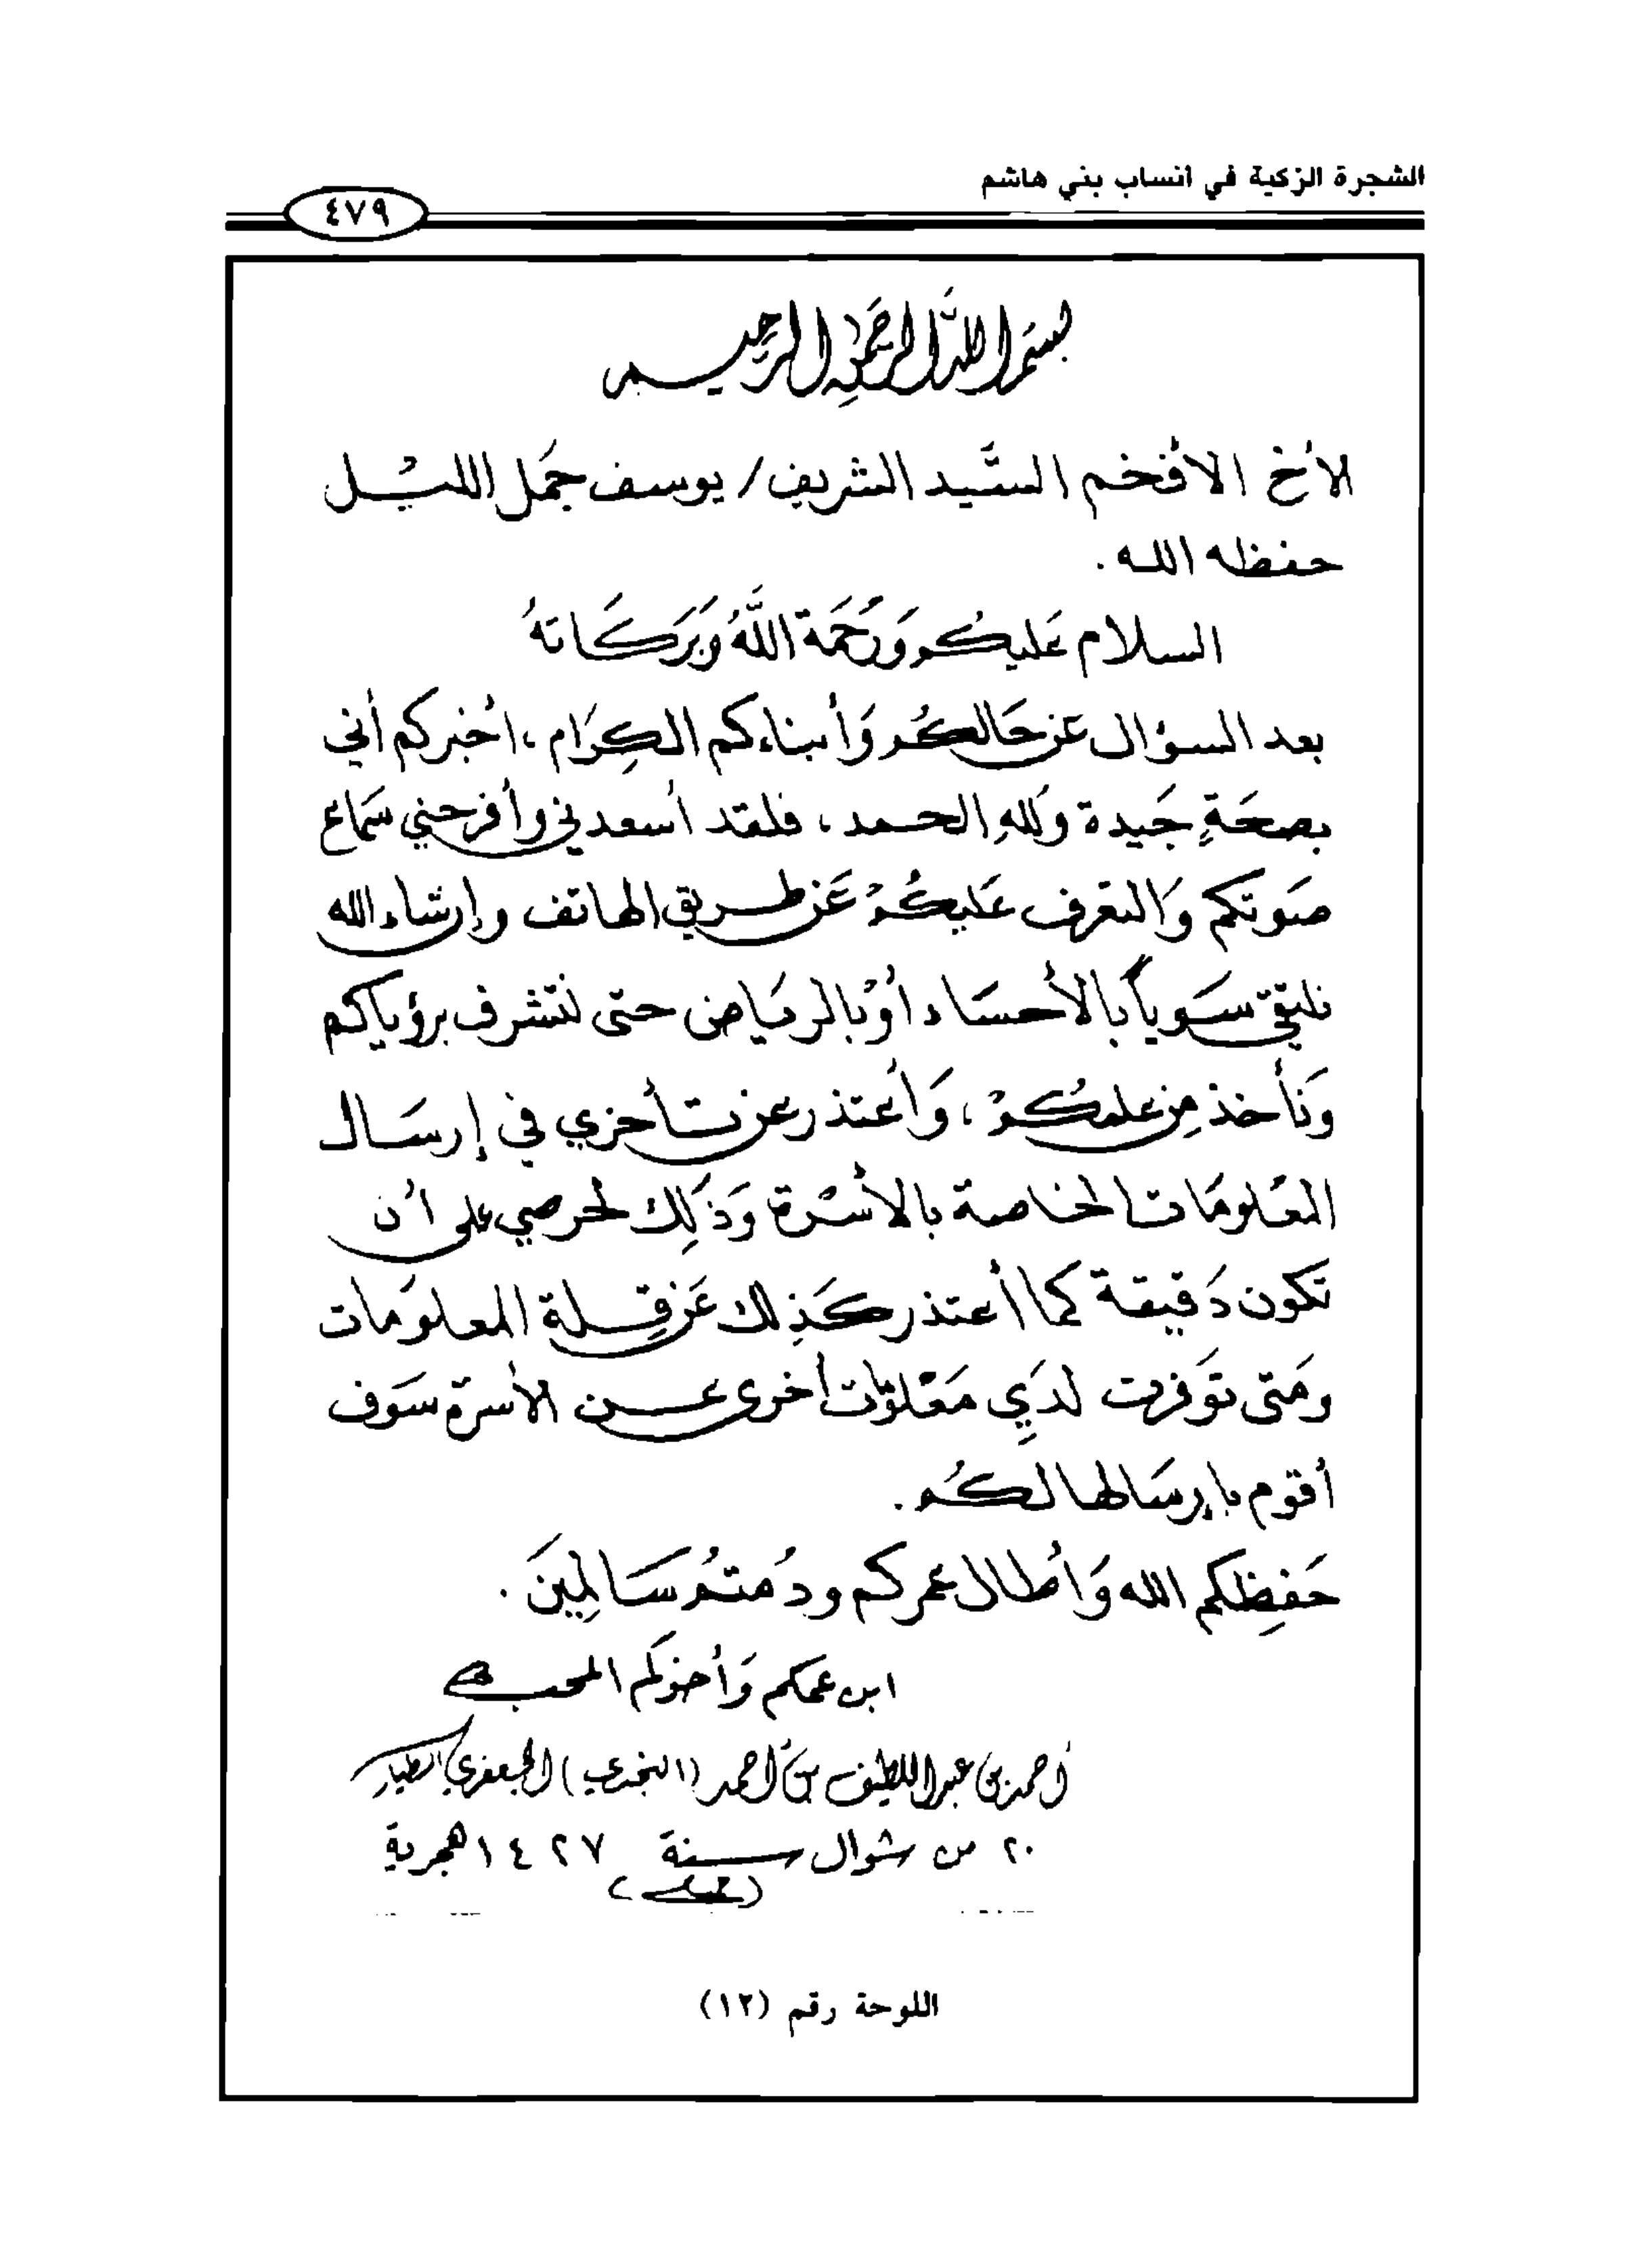 الشجرة الزكية في أنساب بني هاشم
٤٧٩
بسم الله الرحمن الرحيم
الأخ الأفخم السَّيد الشريف / يوسف جَمَل الليْل
حفظه الله .
السلام عَليكُم وَرَحْمَة اللَّهُ وَبَرَكَاتهُ
بعد السؤال عَن حَالكُم وَأبناءكم الكِرَام ، أخبركم أني
بصحَةٍ جَيدة وَللهِ الحمد ، فلقد أسعدني وأفرحني سَماع
صَوتكم وَالتعَرف عَليكُمْ عَن طريق الهاتف وإن شاء الله
نلتقي سَوياً بالأحسَاء أوْ بالريَاض حتى نتشرف برؤياكم
وَنأخذ مِن علمكُمْ ، وَأعتذر عن تأخري في إرسَال
المعْلومَات الخاصة بالأسْرة وَذَلِك لحرصي على أن
تكون دَقيقة كما أعتذر كَذِلك عَن قِلة المعلومَات
ومَتى توَفرت لدَيِ مَعْلومَات أخرى عن الأسرة سَوف
أقوم بإرسَالها لكُم .
حَفِظكم الله وَأطال عمركم ودُمتُم سَالمِينَ .
ابن عمكم وَأخوكم المحب
أحمد بن عبد اللطيف بن أحمد (النجدي) الجعفري الطيار
٢٠ من شوال سنة ١٤٢٧ هجرية
اللوحة رقم (١٢)